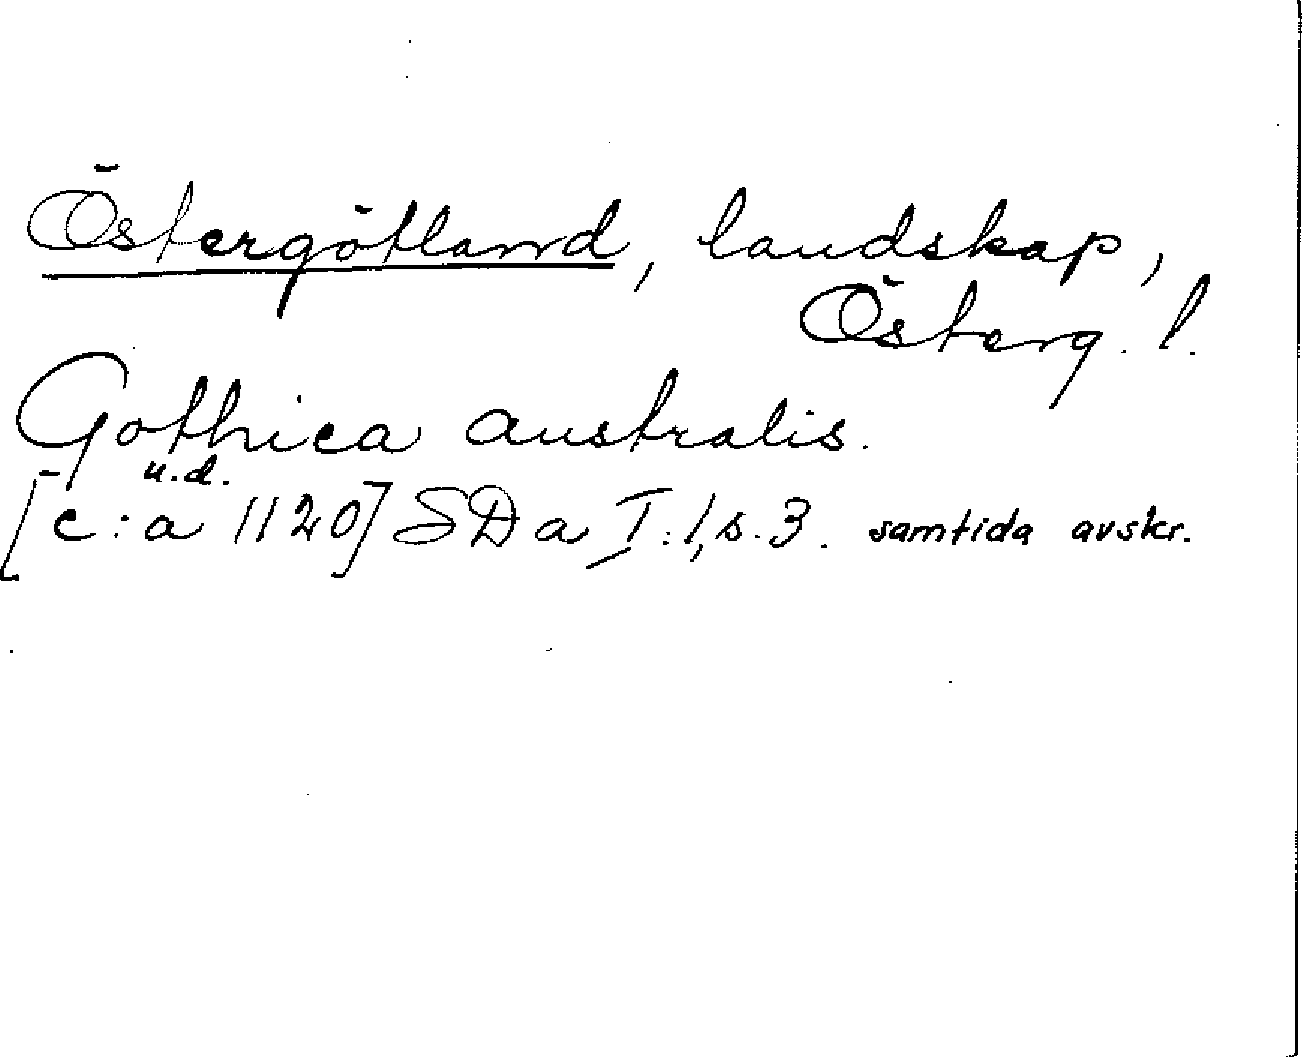 Östergötland, landskap,
Österg. l.
Gothica australis.
u.d.
[c:a 1120] SD a I:1, s. 3. samtida avskr.